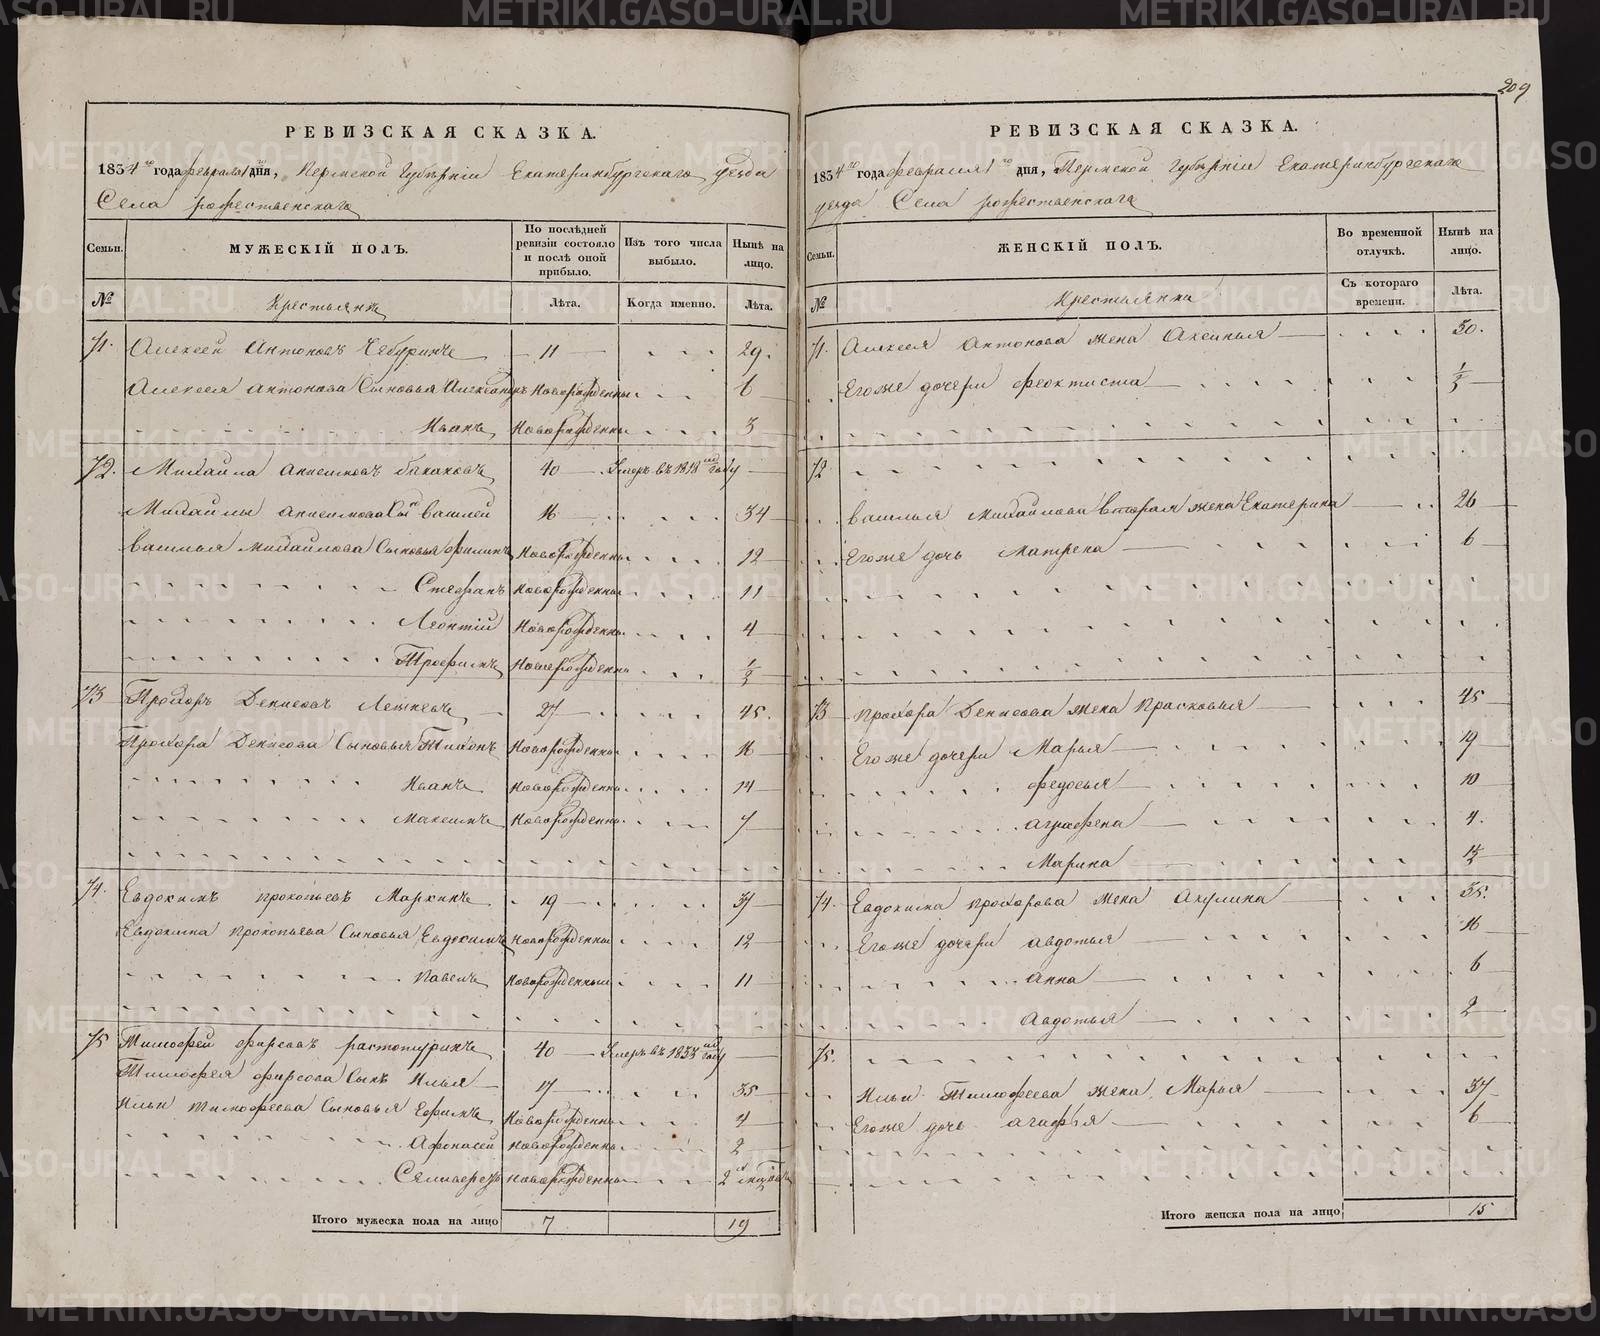 209
РЕВИЗСКАЯ СКАЗКА.
1834 го года февраля 1 го дня, Пермской Губернiи Екатеринбургскаго уезда
Села рожественскаго
Семьи. МУЖЕСКІЙ ПОЛЪ. По послѣдней ревизіи состояло и послѣ оной прибыло. Изъ того числа выбыло. Нынѣ на лицо.
№ Крестьянъ Лѣта. Когда именно. Лѣта.
71. Алексей Антоновъ 11 29.
Алексея Антонова Сыновья Александръ Новорожденны 6
Иванъ Новорожденны 3
72. Михайла Анисимовъ 40 Умеръ въ 1818 году
Михайлы Анисимова Сын Василей 16 34
Василья Михайлова Сыновья Филипъ Новорожденны 12
Стефанъ Новорожденны 11
Леонтiй Новорожденны 4
Трофимъ Новорожденны 1/2
73 Прохоръ Денисовъ 27 45.
Прохора Денисова Сыновья Тихонъ Новорожденны 16
Иванъ Новорожденны 14
Максимъ Новорожденны 7
74. Евдокимъ прокопьевъ Маркинъ 19 37
Евдокима Прокопьева Сыновья Евдокимъ Новорожденны 12
Павелъ Новорожденныи 11
75 Тимофей фирсовъ растотуринъ 40 Умеръ въ 1833 году
Тимофея фирсова Сынъ Илья 17 35
Ильи Тимофеева Сыновья Ефимъ Новорожденны 4
Афонасей Новорожденны 2
Селиверстъ Новорожденны 2
Итого мужеска пола на лицо 7 19
РЕВИЗСКАЯ СКАЗКА.
1834 го года февраля 1 го дня, Пермской Губернiи Екатеринбургскаго
уезда Села рожественскаго
Семьи. ЖЕНСКІЙ ПОЛЪ. Во временной отлучкѣ. Нынѣ на лицо.
№ Крестьянки Съ котораго времени. Лѣта.
71. Алексея Антонова жена Аксинья 30.
Егоже дочери феоктиста 1/2
72
Василья Михайлова вторая жена Екатерина 26
Егоже дочь Матрена 6
73 Прохора Денисова жена Прасковья 45
Егоже дочери Марья 19
федосья 10
аграфена 4.
Марина
74. Евдокима прохорова жена Акулина 35.
Егоже дочери авдотья 16
анна 6
Авдотья 2
75.
Ильи Тимофеева жена Марья 37
Егоже дочь агафья 6
Итого женска пола на лицо 15
METRIKI.GASO-URAL.RU